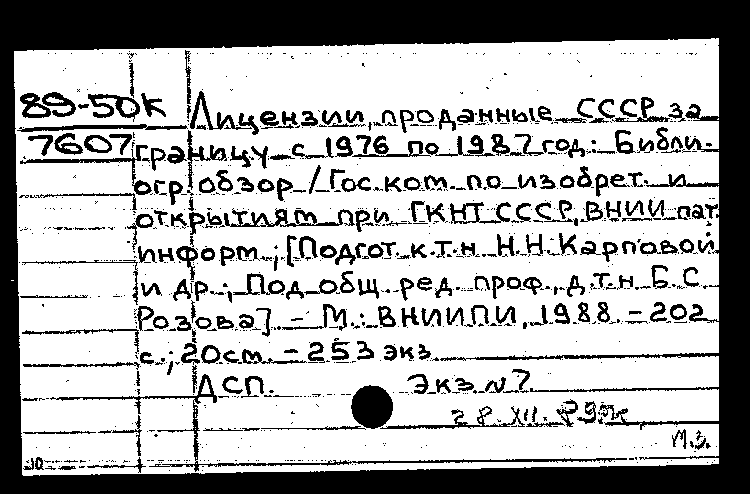 89-50к Лицензии, проданные СССР за
7607 границу с 1976 по 1987 год: Библи-
огр. обзор / Гос. ком. по изобрет. и
открытиям при ГКНТ СССР, ВНИИ пат.
информ.; [Подгот. к.т.н. Н.Н. Карповой
и др.; Под общ. ред. проф., д.т.н. Б.С.
Розова] - М.: ВНИИПИ, 1988. - 202
с.; 20см. - 253 экз.
ДСП. Экз. N 7.
28.XII.
М.З.
10